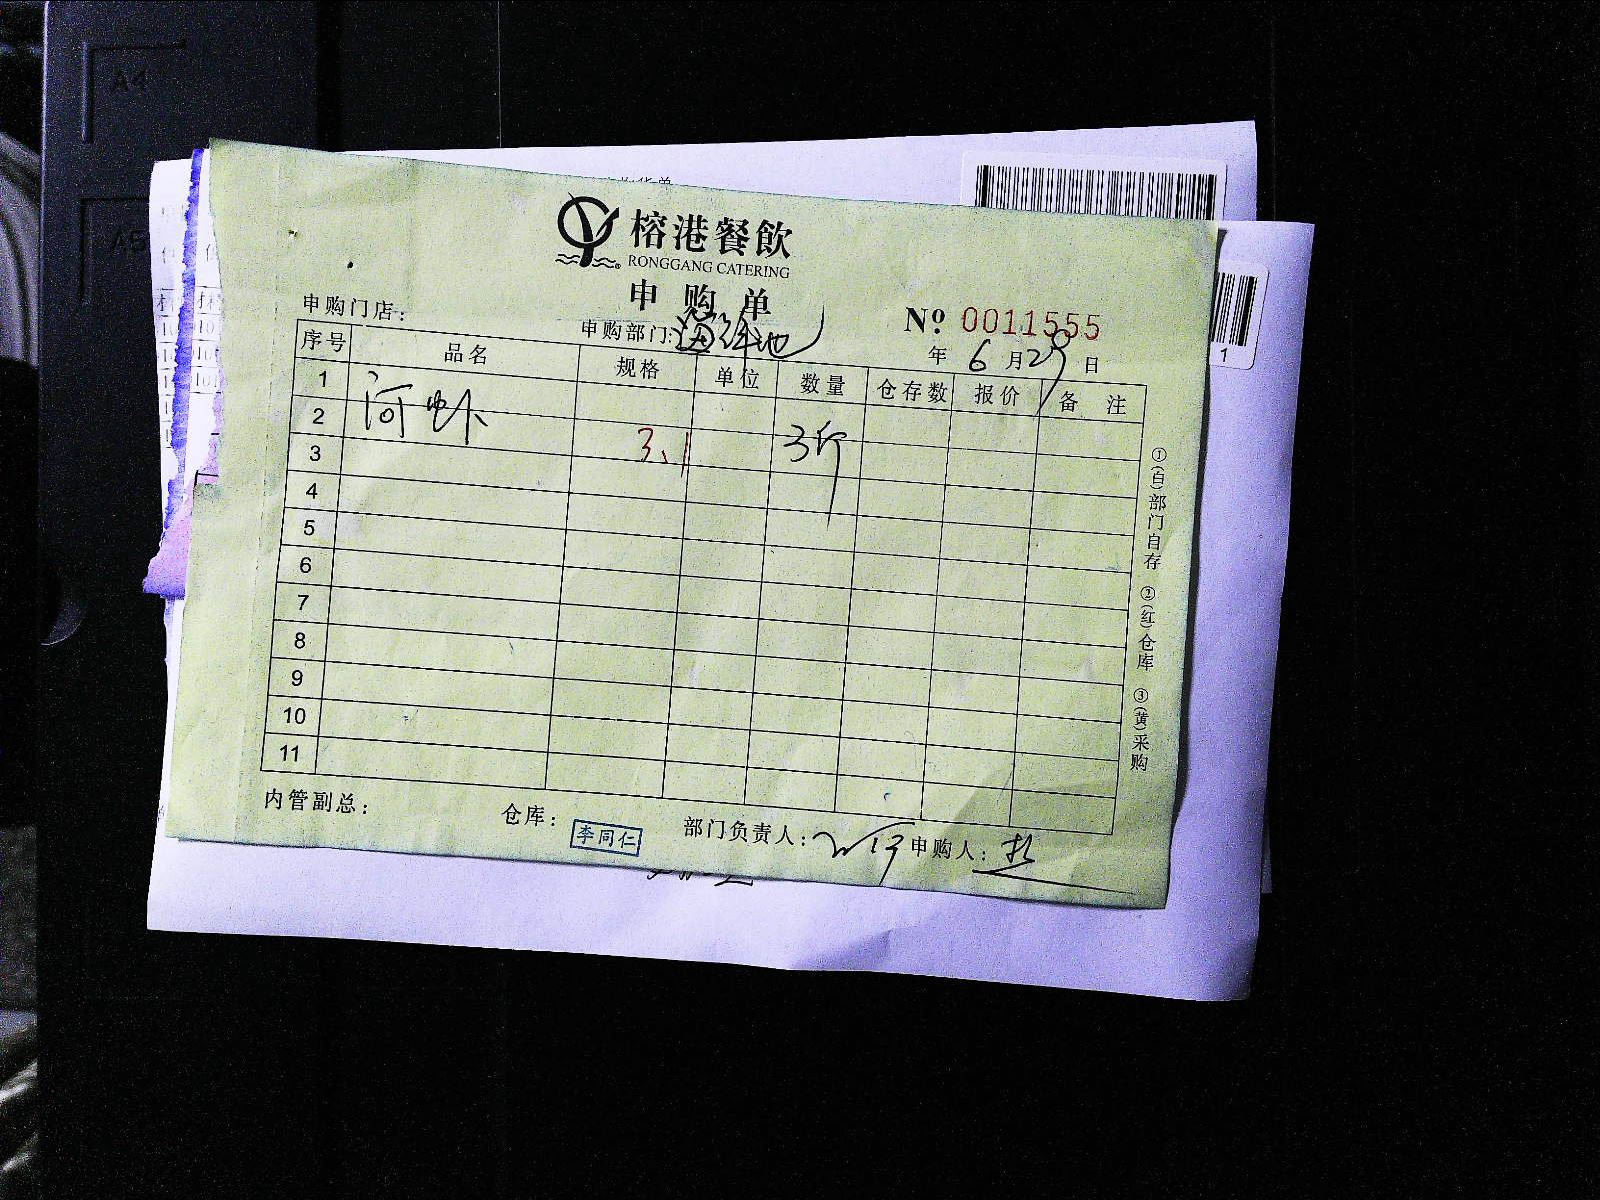 A4
A5
榕港餐飲
RONGGANG CATERING
申购单
申购门店：
申购部门：海鲜池
№ 0011555
年 6 月 29 日
序号 品名 规格 单位 数量 仓存数 报价 备注
1
2 河虾 3.1 3斤
3
4
5
6
7
8
9
10
11
①(白)部门自存 ②(红)仓库 ③(黄)采购
内管副总： 仓库： 李同仁 部门负责人： 申购人：
1